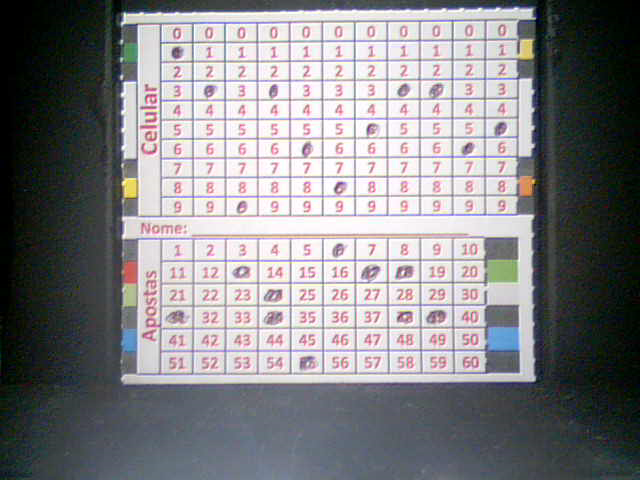 Celular
0 0 0 0 0 0 0 0 0 0 0
1 1 1 1 1 1 1 1 1 1
2 2 2 2 2 2 2 2 2 2 2
3 3 3 3 3 3 3
4 4 4 4 4 4 4 4 4 4 4
5 5 5 5 5 5 5 5 5
6 6 6 6 6 6 6 6 6
7 7 7 7 7 7 7 7 7 7 7
8 8 8 8 8 8 8 8 8 8
9 9 9 9 9 9 9 9 9 9
Nome:
Apostas
1 2 3 4 5 7 8 9 10
11 12 14 15 16 19 20
21 22 23 25 26 27 28 29 30
32 33 35 36 37 40
41 42 43 44 45 46 47 48 49 50
51 52 53 54 56 57 58 59 60